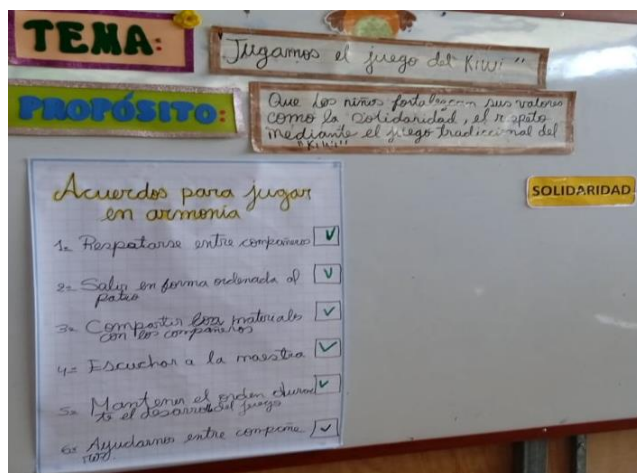 TEMA:
"Jugamos el juego del Kiwi"
PROPÓSITO:
Que los niños fortalezcan sus valores
como la solidaridad, el respeto
mediante el juego tradiccional del
"Kiwi"
SOLIDARIDAD
Acuerdos para jugar
en armonía
1= Respetarse entre compañeros
2= Salir en forma ordenada al
patio
3= Compartir los materiales
con los compañeros
4= Escuchar a la maestra
5= Mantener el orden duran
te el desarrollo del juego
6= Ayudarnos entre compañe
ros.